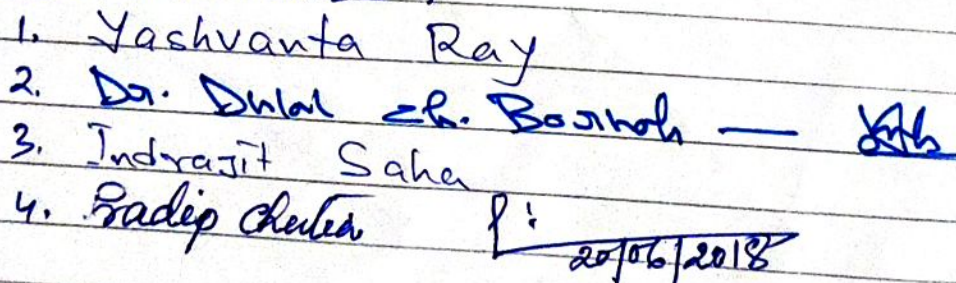 1. Yashvanta Ray
2. Dr. Dulal Ch. Borah —
3. Indrajit Saha
4. Pradip Chutia
20/06/2018